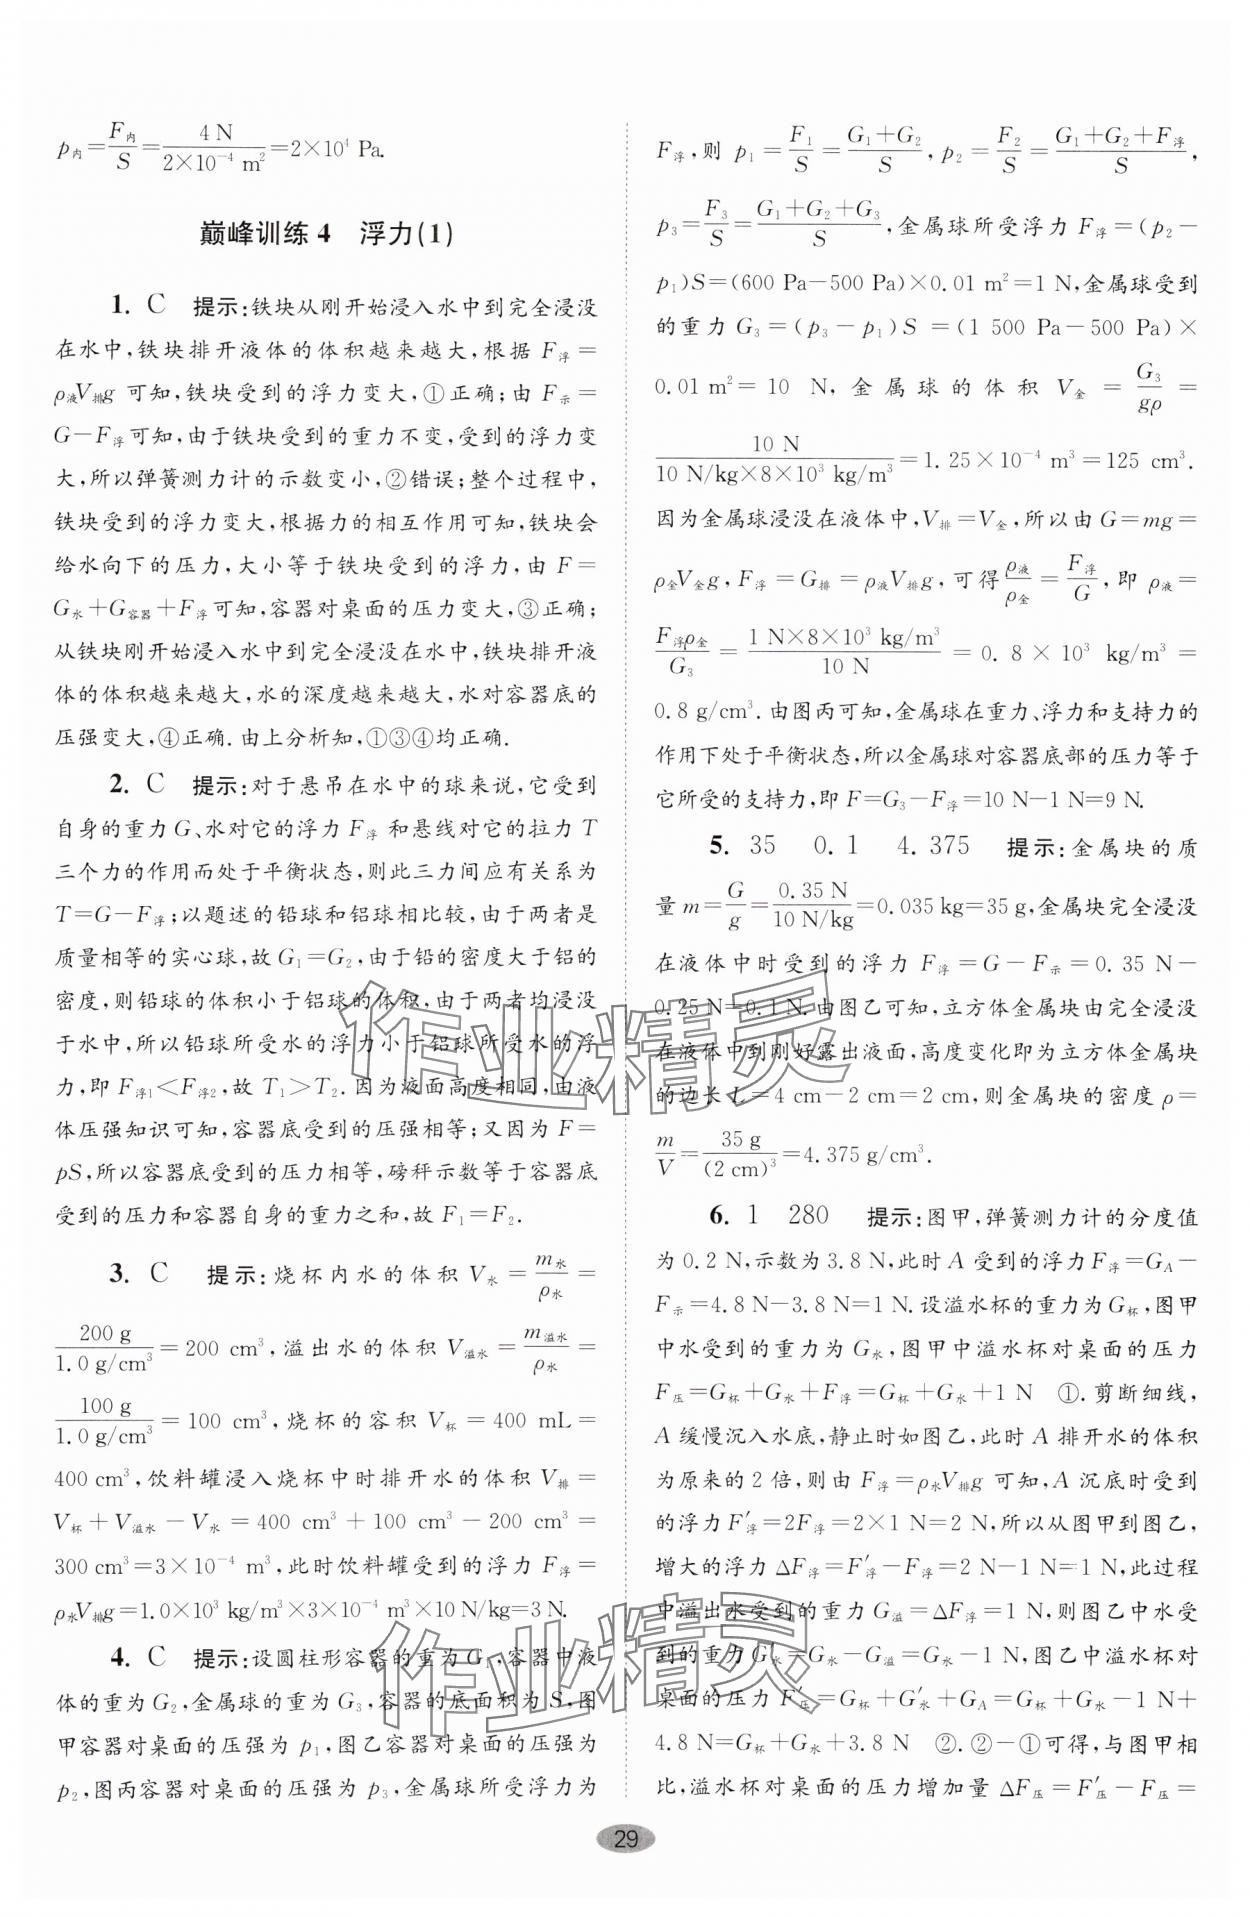 p内=F内/S=4 N/2×10⁻⁴ m²=2×10⁴ Pa.
巅峰训练4　浮力(1)
1. C　提示:铁块从刚开始浸入水中到完全浸没
在水中,铁块排开液体的体积越来越大,根据 F浮=
ρ液V排g 可知,铁块受到的浮力变大,①正确;由 F示=
G-F浮可知,由于铁块受到的重力不变,受到的浮力变
大,所以弹簧测力计的示数变小,②错误;整个过程中,
铁块受到的浮力变大,根据力的相互作用可知,铁块会
给水向下的压力,大小等于铁块受到的浮力,由 F=
G水+G容器+F浮可知,容器对桌面的压力变大,③正确;
从铁块刚开始浸入水中到完全浸没在水中,铁块排开液
体的体积越来越大,水的深度越来越大,水对容器底的
压强变大,④正确.由上分析知,①③④均正确.
2. C　提示:对于悬吊在水中的球来说,它受到
自身的重力 G、水对它的浮力 F浮 和悬线对它的拉力 T
三个力的作用而处于平衡状态,则此三力间应有关系为
T=G-F浮;以题述的铅球和铝球相比较,由于两者是
质量相等的实心球,故 G₁=G₂,由于铅的密度大于铝的
密度,则铅球的体积小于铝球的体积,由于两者均浸没
于水中,所以铅球所受水的浮力小于铝球所受水的浮
力,即 F浮1<F浮2,故 T₁>T₂.因为液面高度相同,由液
体压强知识可知,容器底受到的压强相等;又因为 F=
pS,所以容器底受到的压力相等,磅秤示数等于容器底
受到的压力和容器自身的重力之和,故 F₁=F₂.
3. C　提示:烧杯内水的体积 V水=m水/ρ水=
200 g/1.0 g/cm³=200 cm³,溢出水的体积 V溢水=m溢水/ρ水=
100 g/1.0 g/cm³=100 cm³,烧杯的容积 V杯=400 mL=
400 cm³,饮料罐浸入烧杯中时排开水的体积 V排=
V杯+V溢水-V水=400 cm³+100 cm³-200 cm³=
300 cm³=3×10⁻⁴ m³,此时饮料罐受到的浮力 F浮=
ρ水V排g=1.0×10³ kg/m³×3×10⁻⁴ m³×10 N/kg=3 N.
4. C　提示:设圆柱形容器的重为 G₁,容器中液
体的重为 G₂,金属球的重为 G₃,容器的底面积为 S,图
甲容器对桌面的压强为 p₁,图乙容器对桌面的压强为
p₂,图丙容器对桌面的压强为 p₃,金属球所受浮力为
F浮,则 p₁=F₁/S=G₁+G₂/S,p₂=F₂/S=G₁+G₂+F浮/S,
p₃=F₃/S=G₁+G₂+G₃/S,金属球所受浮力 F浮=(p₂-
p₁)S=(600 Pa-500 Pa)×0.01 m²=1 N,金属球受到
的重力 G₃=(p₃-p₁)S=(1 500 Pa-500 Pa)×
0.01 m²=10 N,金属球的体积 V金=G₃/gρ=
10 N/10 N/kg×8×10³ kg/m³=1.25×10⁻⁴ m³=125 cm³.
因为金属球浸没在液体中,V排=V金,所以由 G=mg=
ρ金V金g,F浮=G排=ρ液V排g,可得ρ液/ρ金=F浮/G,即 ρ液=
F浮ρ金/G₃=1 N×8×10³ kg/m³/10 N=0.8×10³ kg/m³=
0.8 g/cm³.由图丙可知,金属球在重力、浮力和支持力的
作用下处于平衡状态,所以金属球对容器底部的压力等于
它所受的支持力,即 F=G₃-F浮=10 N-1 N=9 N.
5. 35　0.1　4.375　提示:金属块的质
量 m=G/g=0.35 N/10 N/kg=0.035 kg=35 g,金属块完全浸没
在液体中时受到的浮力 F浮=G-F示=0.35 N-
0.25 N=0.1 N.由图乙可知,立方体金属块由完全浸没
在液体中到刚好露出液面,高度变化即为立方体金属块
的边长 L=4 cm-2 cm=2 cm,则金属块的密度 ρ=
m/V=35 g/(2 cm)³=4.375 g/cm³.
6. 1　280　提示:图甲,弹簧测力计的分度值
为 0.2 N,示数为 3.8 N,此时 A 受到的浮力 F浮=G_A-
F示=4.8 N-3.8 N=1 N.设溢水杯的重力为 G杯,图甲
中水受到的重力为 G水,图甲中溢水杯对桌面的压力
F压=G杯+G水+F浮=G杯+G水+1 N　①.剪断细线,
A 缓慢沉入水底,静止时如图乙,此时 A 排开水的体积
为原来的 2 倍,则由 F浮=ρ水V排g 可知,A 沉底时受到
的浮力 F′浮=2F浮=2×1 N=2 N,所以从图甲到图乙,
增大的浮力 ΔF浮=F′浮-F浮=2 N-1 N=1 N,此过程
中溢出水受到的重力 G溢=ΔF浮=1 N,则图乙中水受
到的重力 G′水=G水-G溢=G水-1 N,图乙中溢水杯对
桌面的压力 F′压=G杯+G′水+G_A=G杯+G水-1 N+
4.8 N=G杯+G水+3.8 N　②.②-①可得,与图甲相
比,溢水杯对桌面的压力增加量 ΔF压=F′压-F压=
29
作业精灵
作业精灵